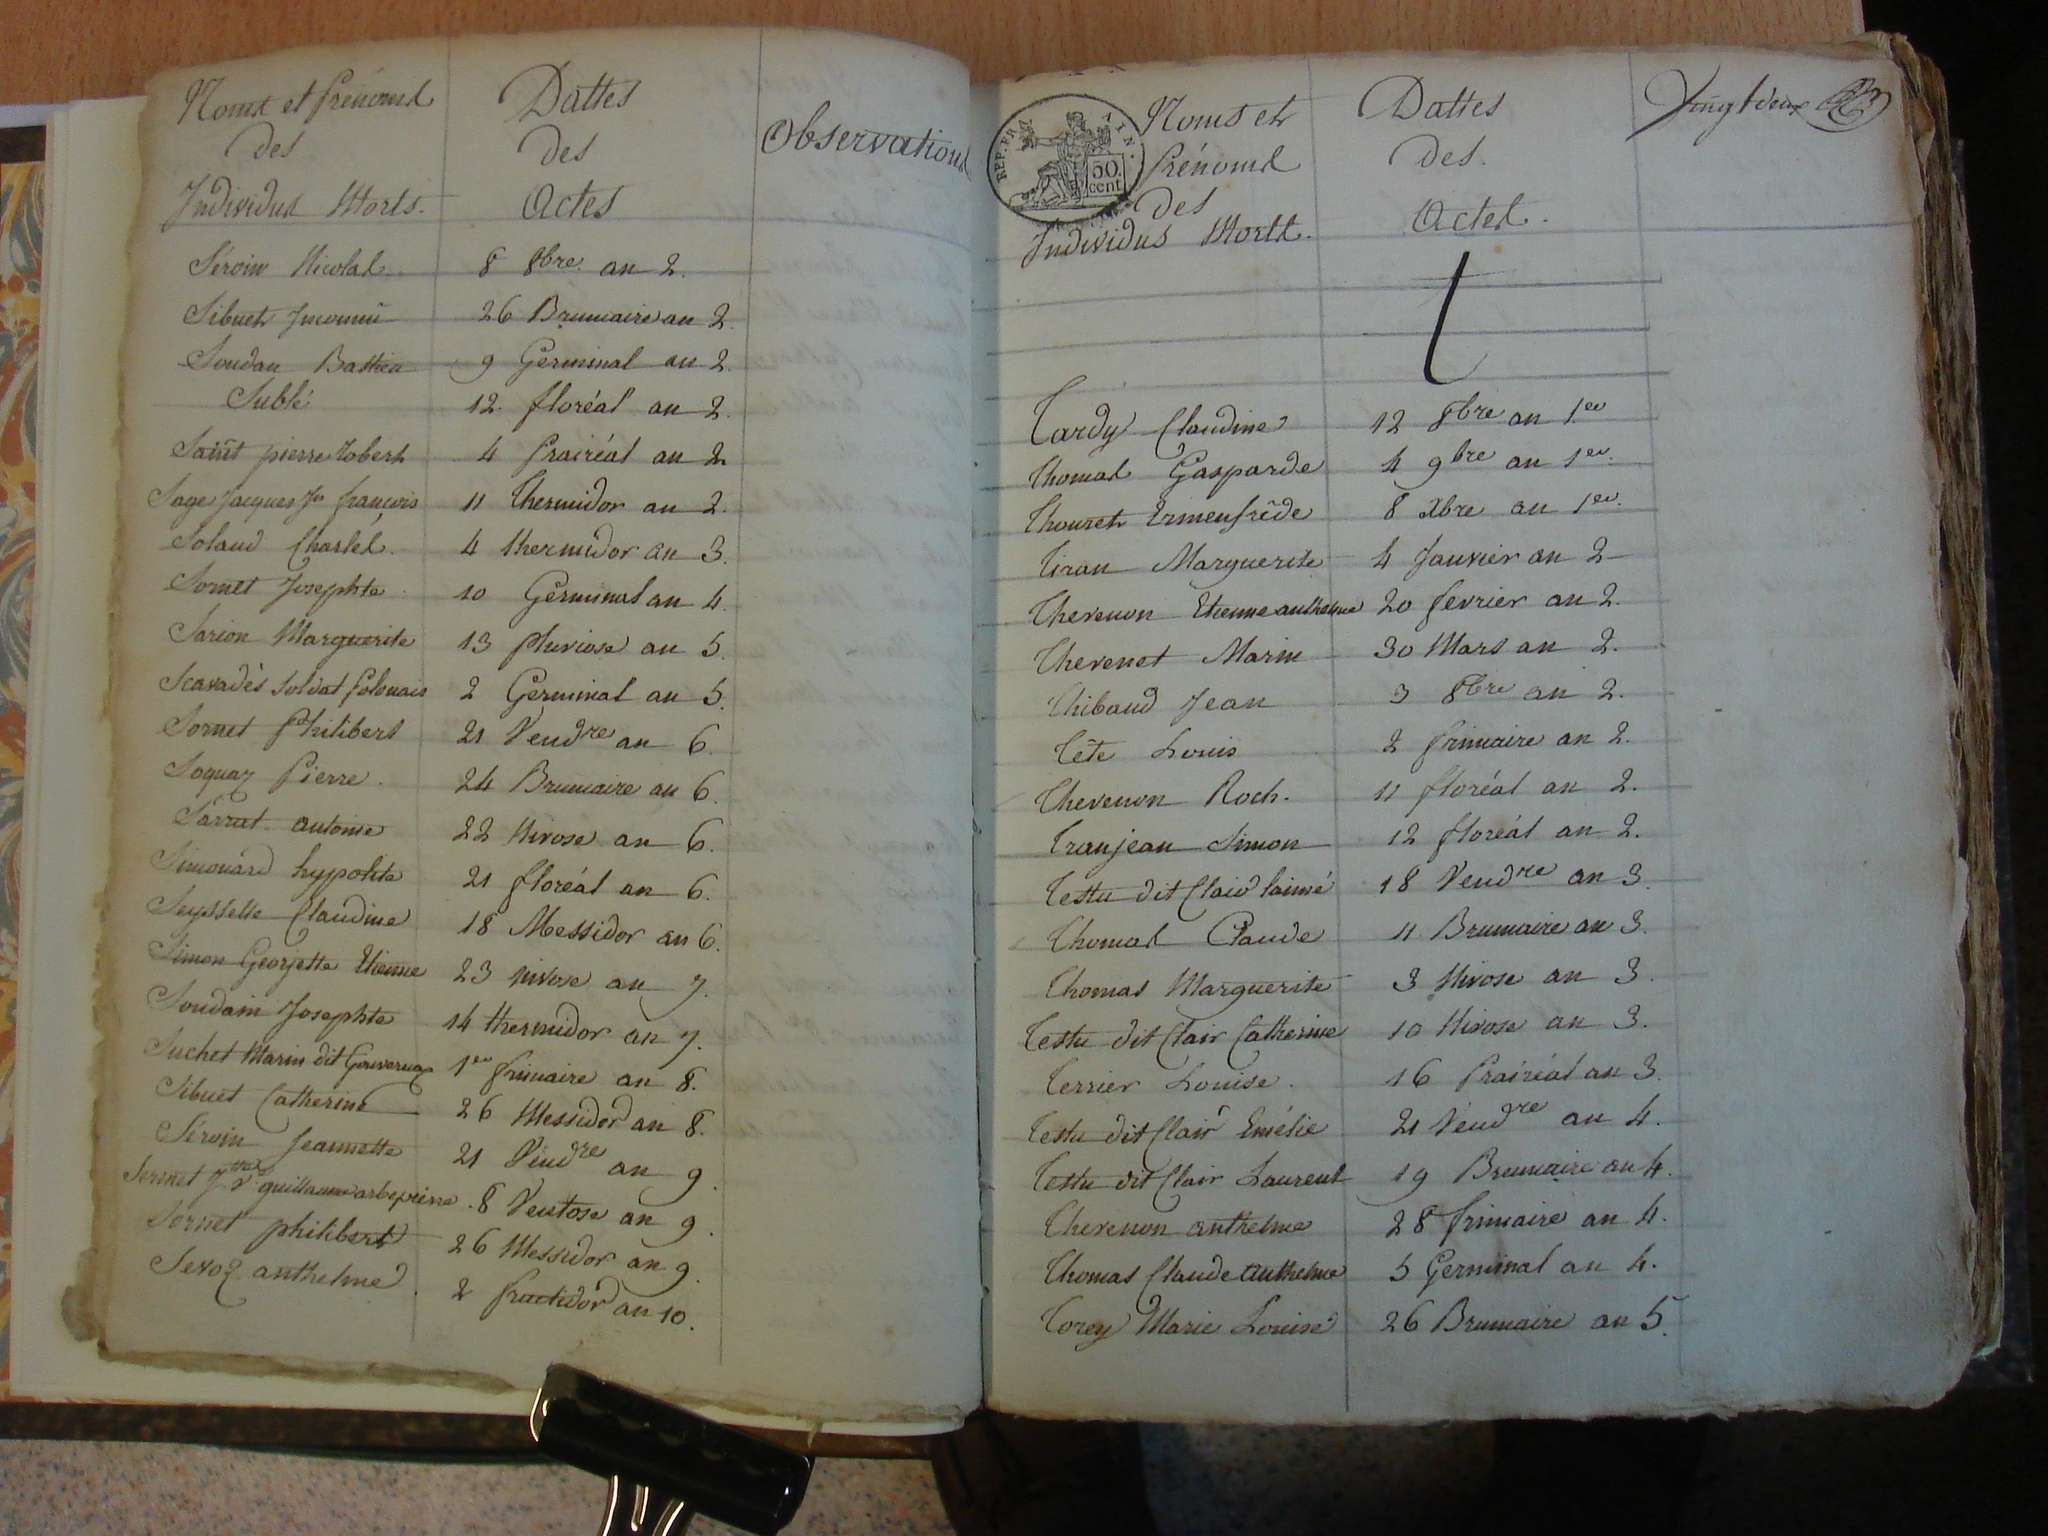 Noms et Prénoms
des
Individus Morts.
Dattes
des
Actes
Observations
Séroin Nicolas 8 8bre an 2.
Sibuet Inconnü 26 Brumaire an 2.
Soudan Bastien 9 Germinal an 2.
Sublé 12. floréal an 2.
Saint pierre Robert 4 Prairéal an 2
Sage Jacques Jn françois 11 Thermidor an 2.
Solaud Charles. 4 thermidor an 3.
Sornet Josephte 10 Germinal an 4.
Sarion Marguerite 13 pluviose an 5.
Scavadès soldat Polonais 2 Germinal an 5.
Sornet Philibert 21 Vendre an 6.
Soquaz Pierre. 24 Brumaire an 6.
Sarrat antoine 22 Nivose an 6.
Simonard hypolite 21 floréal an 6.
Seysselle Claudine 18 Messidor an 6.
Simon Georjette Etienne 23 nivose an 7.
Soudain Josephte 14 thermidor an 7.
Suchet Marin dit 1er frimaire an 8.
Sibuet Catherine 26 Messidor an 8.
Séroin Jeannette 21 Vendre an 9.
guillaume 8 Ventose an 9.
Sornet philibert 26 Messidor an 9.
Sevoz anthelme 2 fructidor an 10.
REP. FRA
50.
cent
Noms et
Prénoms
des
Individus Morts.
Dattes
des.
Actes.
Vingt deux
t
Tardy Claudine 12 8bre an 1er
Thomas Gasparde 4 9bre an 1er.
Thouret Ermenfrède 8 Xbre an 1er.
Tiran Marguerite 4 Janvier an 2
Thevenon Etienne anthelme 20 fevrier an 2.
Thevenet Marin 30 Mars an 2.
Thibaud Jean 3 8bre an 2.
Tête Louis 2 frimaire an 2.
Thevenon Roch. 11 floréal an 2.
Tranjean Simon 12 floréal an 2.
Testu dit Clair laimé 18 Vendre an 3.
Thomas Claude 11 Brumaire an 3.
Thomas Marguerite 3 Nivose an 3.
Testu dit Clair Catherine 10 Nivose an 3.
Terrier Louise. 16 Prairéal an 3.
Testu dit Clair Emélie 21 Vendre an 4.
Testu dit Clair Laurent 19 Brumaire an 4.
Thevenon anthelme 28 frimaire an 4.
Thomas Claude anthelme 5 Germinal an 4.
Torey Marie Louise 26 Brumaire an 5.